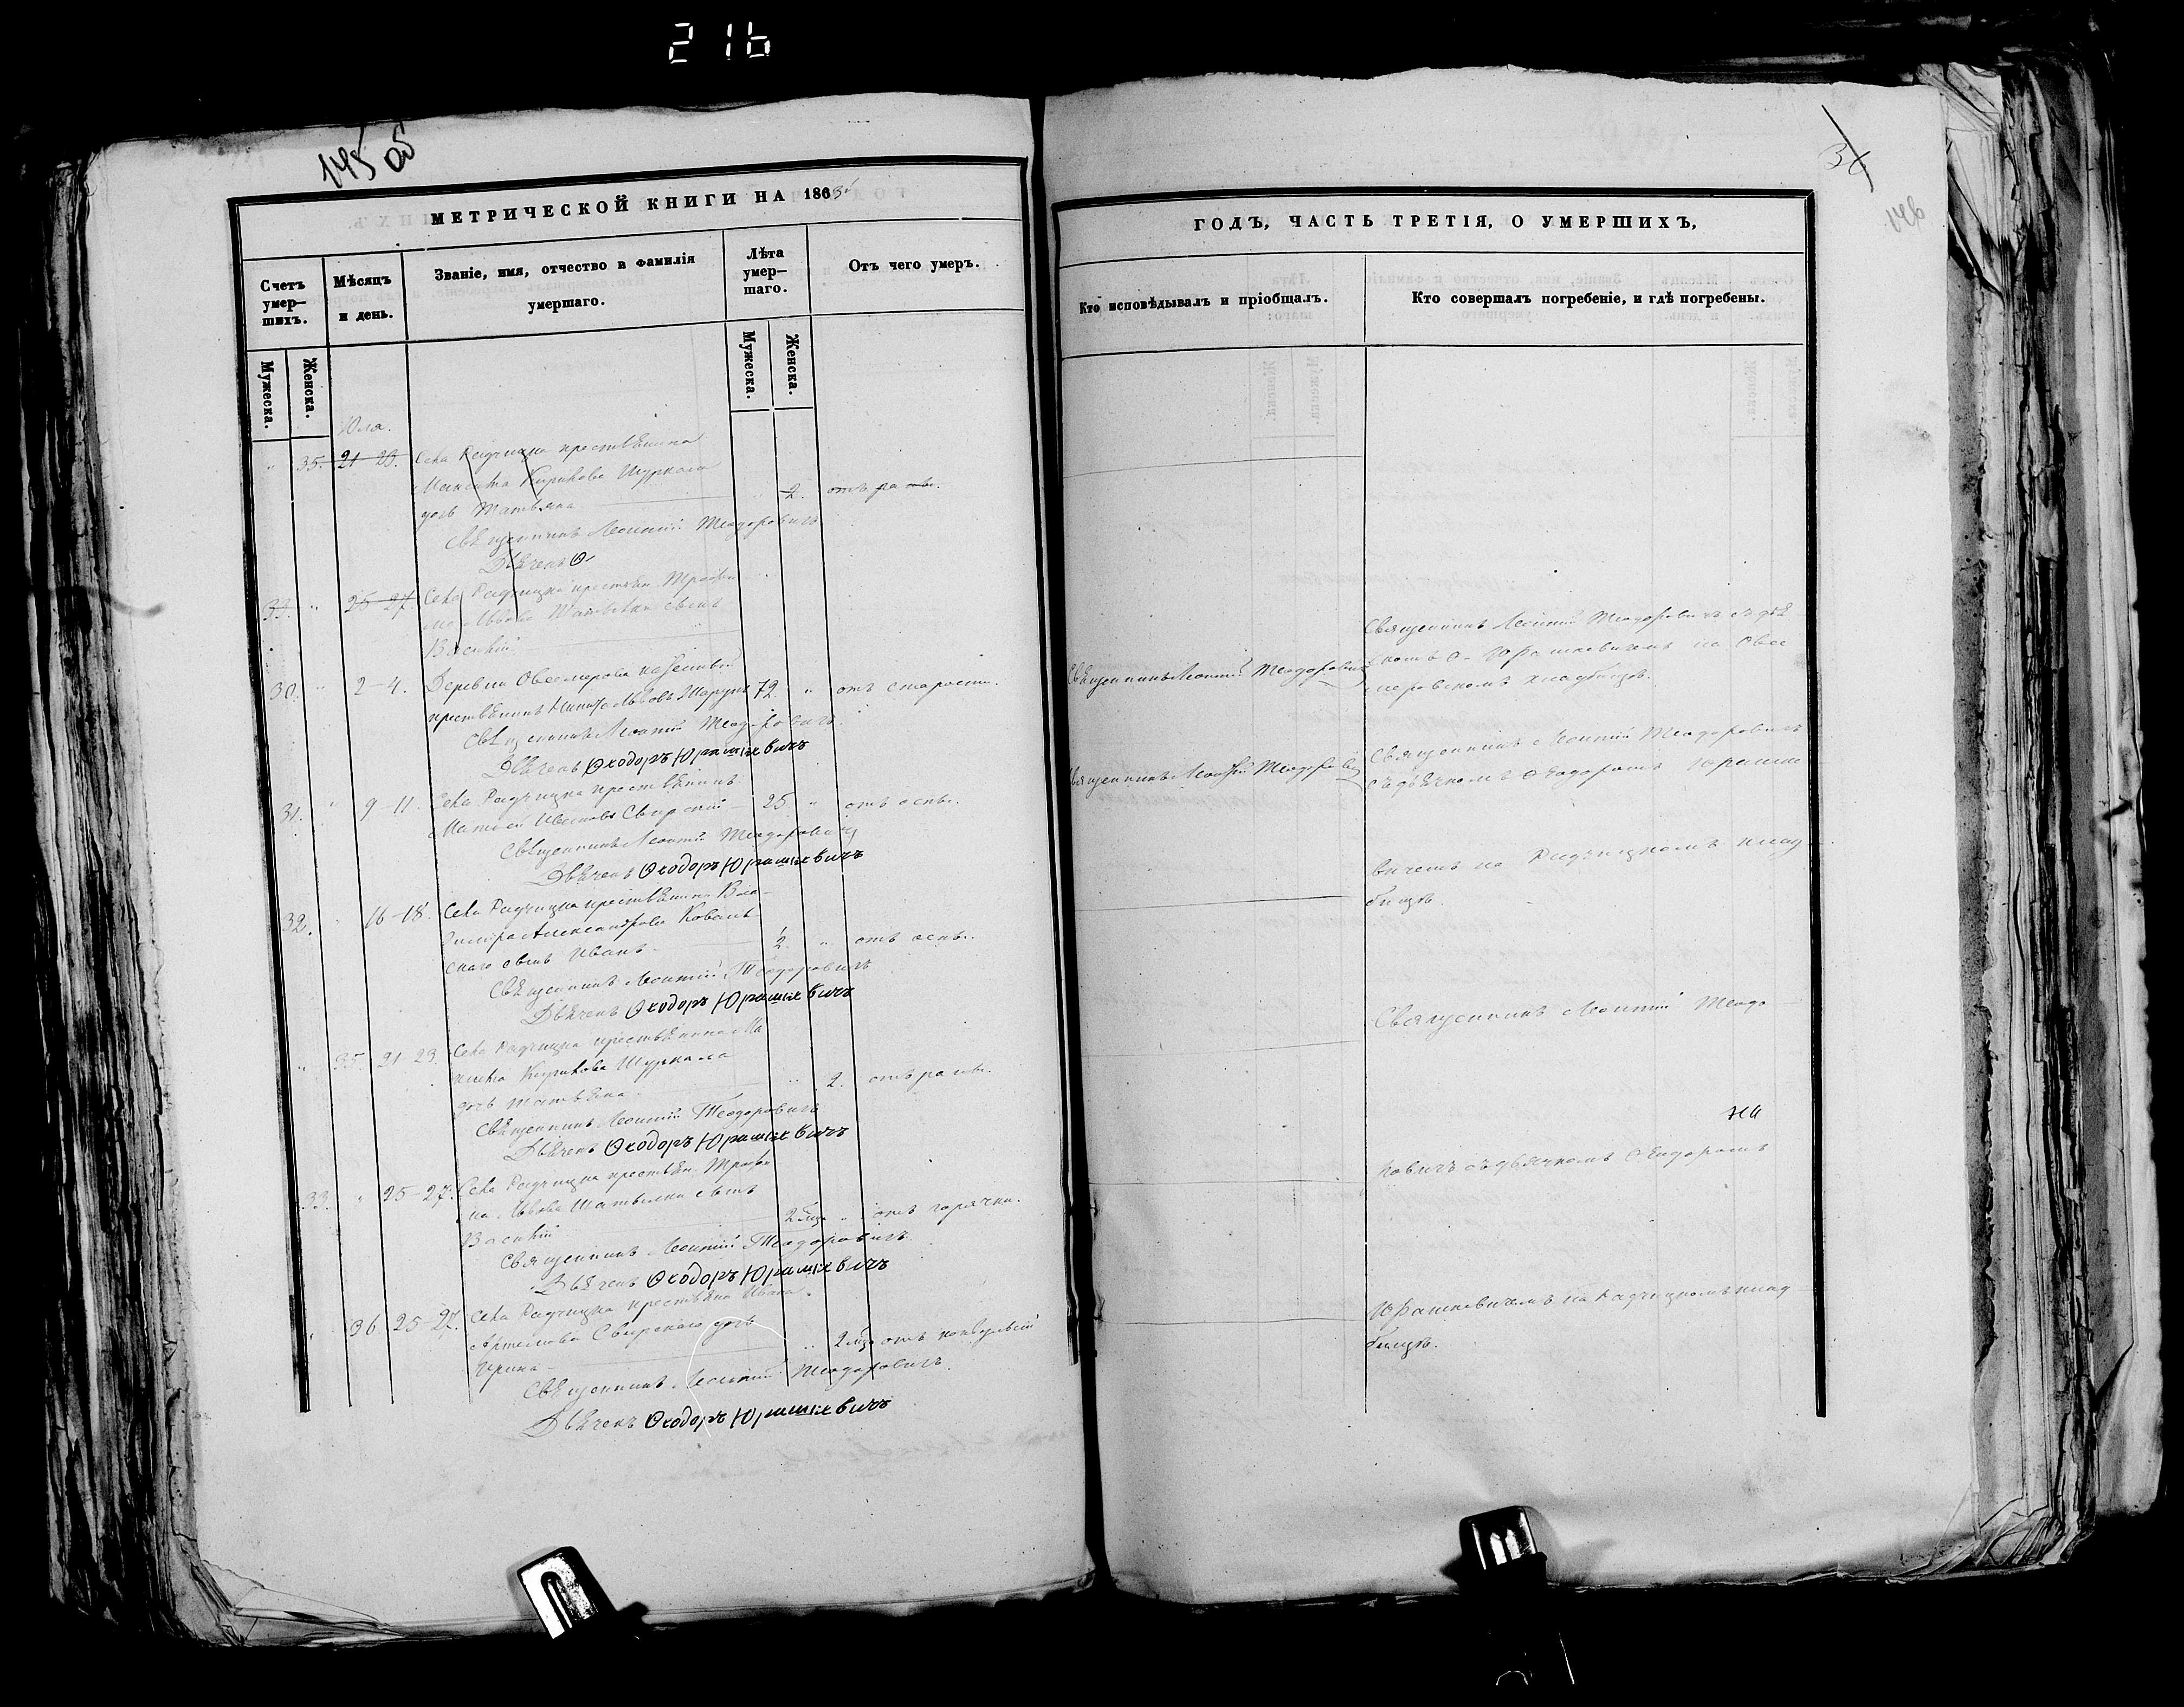 216
145 об
МЕТРИЧЕСКОЙ КНИГИ НА 1863й
Счетъ умер—шихъ.
Мѣсяцъ и день.
Званіе, имя, отчество и фамилія умершаго.
Лѣта умер—шаго.
Отъ чего умеръ.
Мужеска.
Женска.
Мужеска.
Женска.
Юля.
" 35. 21 23. Села Радчицка крестьянина
Максима Кирикова Шуркала
дочь Татьяна 2.
Священникъ Леонтій Теодоровичъ
Дьячекъ Ѳ
33. " 25-27. Села Радчицка крестьян. Трофи
ма Львова сынъ
Василій
30. " 2-4. Деревни Овсемерова
крестьянинъ Львовъ 72. " отъ старости.
Священникъ Леонтій Теодоровичъ.
Дьячекъ Ѳеодоръ Юрашкевичъ
31. " 9-11. Села Радчицка крестьянинъ
Матѳей Свирскій 25. " отъ оспы.
Священникъ Леонтій Теодоровичъ
Дьячекъ Ѳеодоръ Юрашкевичъ
32. " 16-18. Села Радчицка крестьянина Вла-
диміра Александрова Коваль-
скаго сынъ Иванъ 2. " отъ оспы.
Священникъ Леонтій Теодоровичъ
Дьячекъ Ѳеодоръ Юрашкевичъ
" 35. 21-23. Села Радчицка крестьянина Ма
ксима Кирикова Шуркала
дочь Татьяна. " 2.
Священникъ Леонтій Теодоровичъ
Дьячекъ Ѳеодоръ Юрашкевичъ
33. " 25-27. Села Радчицка крестьян. Трофи
ма Львова сынъ
Василій 2 " отъ горячки.
Священникъ Леонтій Теодоровичъ
Дьячекъ Ѳеодоръ Юрашкевичъ
" 36. 25-27. Села Радчицка крестьяна Ивана
Артемова Свирскаго дочь
Ирина " 2 отъ
Священникъ Леонтій Теодоровичъ.
Дьячекъ Ѳеодоръ Юрашкевичъ
146
ГОДЪ, ЧАСТЬ ТРЕТІЯ, О УМЕРШИХЪ,
Кто исповѣдывалъ и пріобщалъ.
Кто совершалъ погребеніе, и гдѣ погребены.
Священникъ Леонтій Теодоровичъ
Священникъ Леонтій Теодоровичъ съ дья
Юрашкевичемъ на Овсе
меровскомъ кладбищѣ.
Священникъ Леонтій Теодоровичъ
Священникъ Леонтій Теодоровичъ
съ дьячкомъ Ѳеодоромъ Юрашке
вичемъ на Радчицкомъ клад
бищѣ.
Священникъ Леонтій Теодо
на
ровичъ съ дьячкомъ Ѳеодоромъ
Юрашкевичемъ на Радчицкомъ клад
бищѣ.